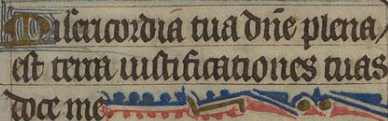 Misericordia tua dñe plena
est terra iustificationes tuas
doce me